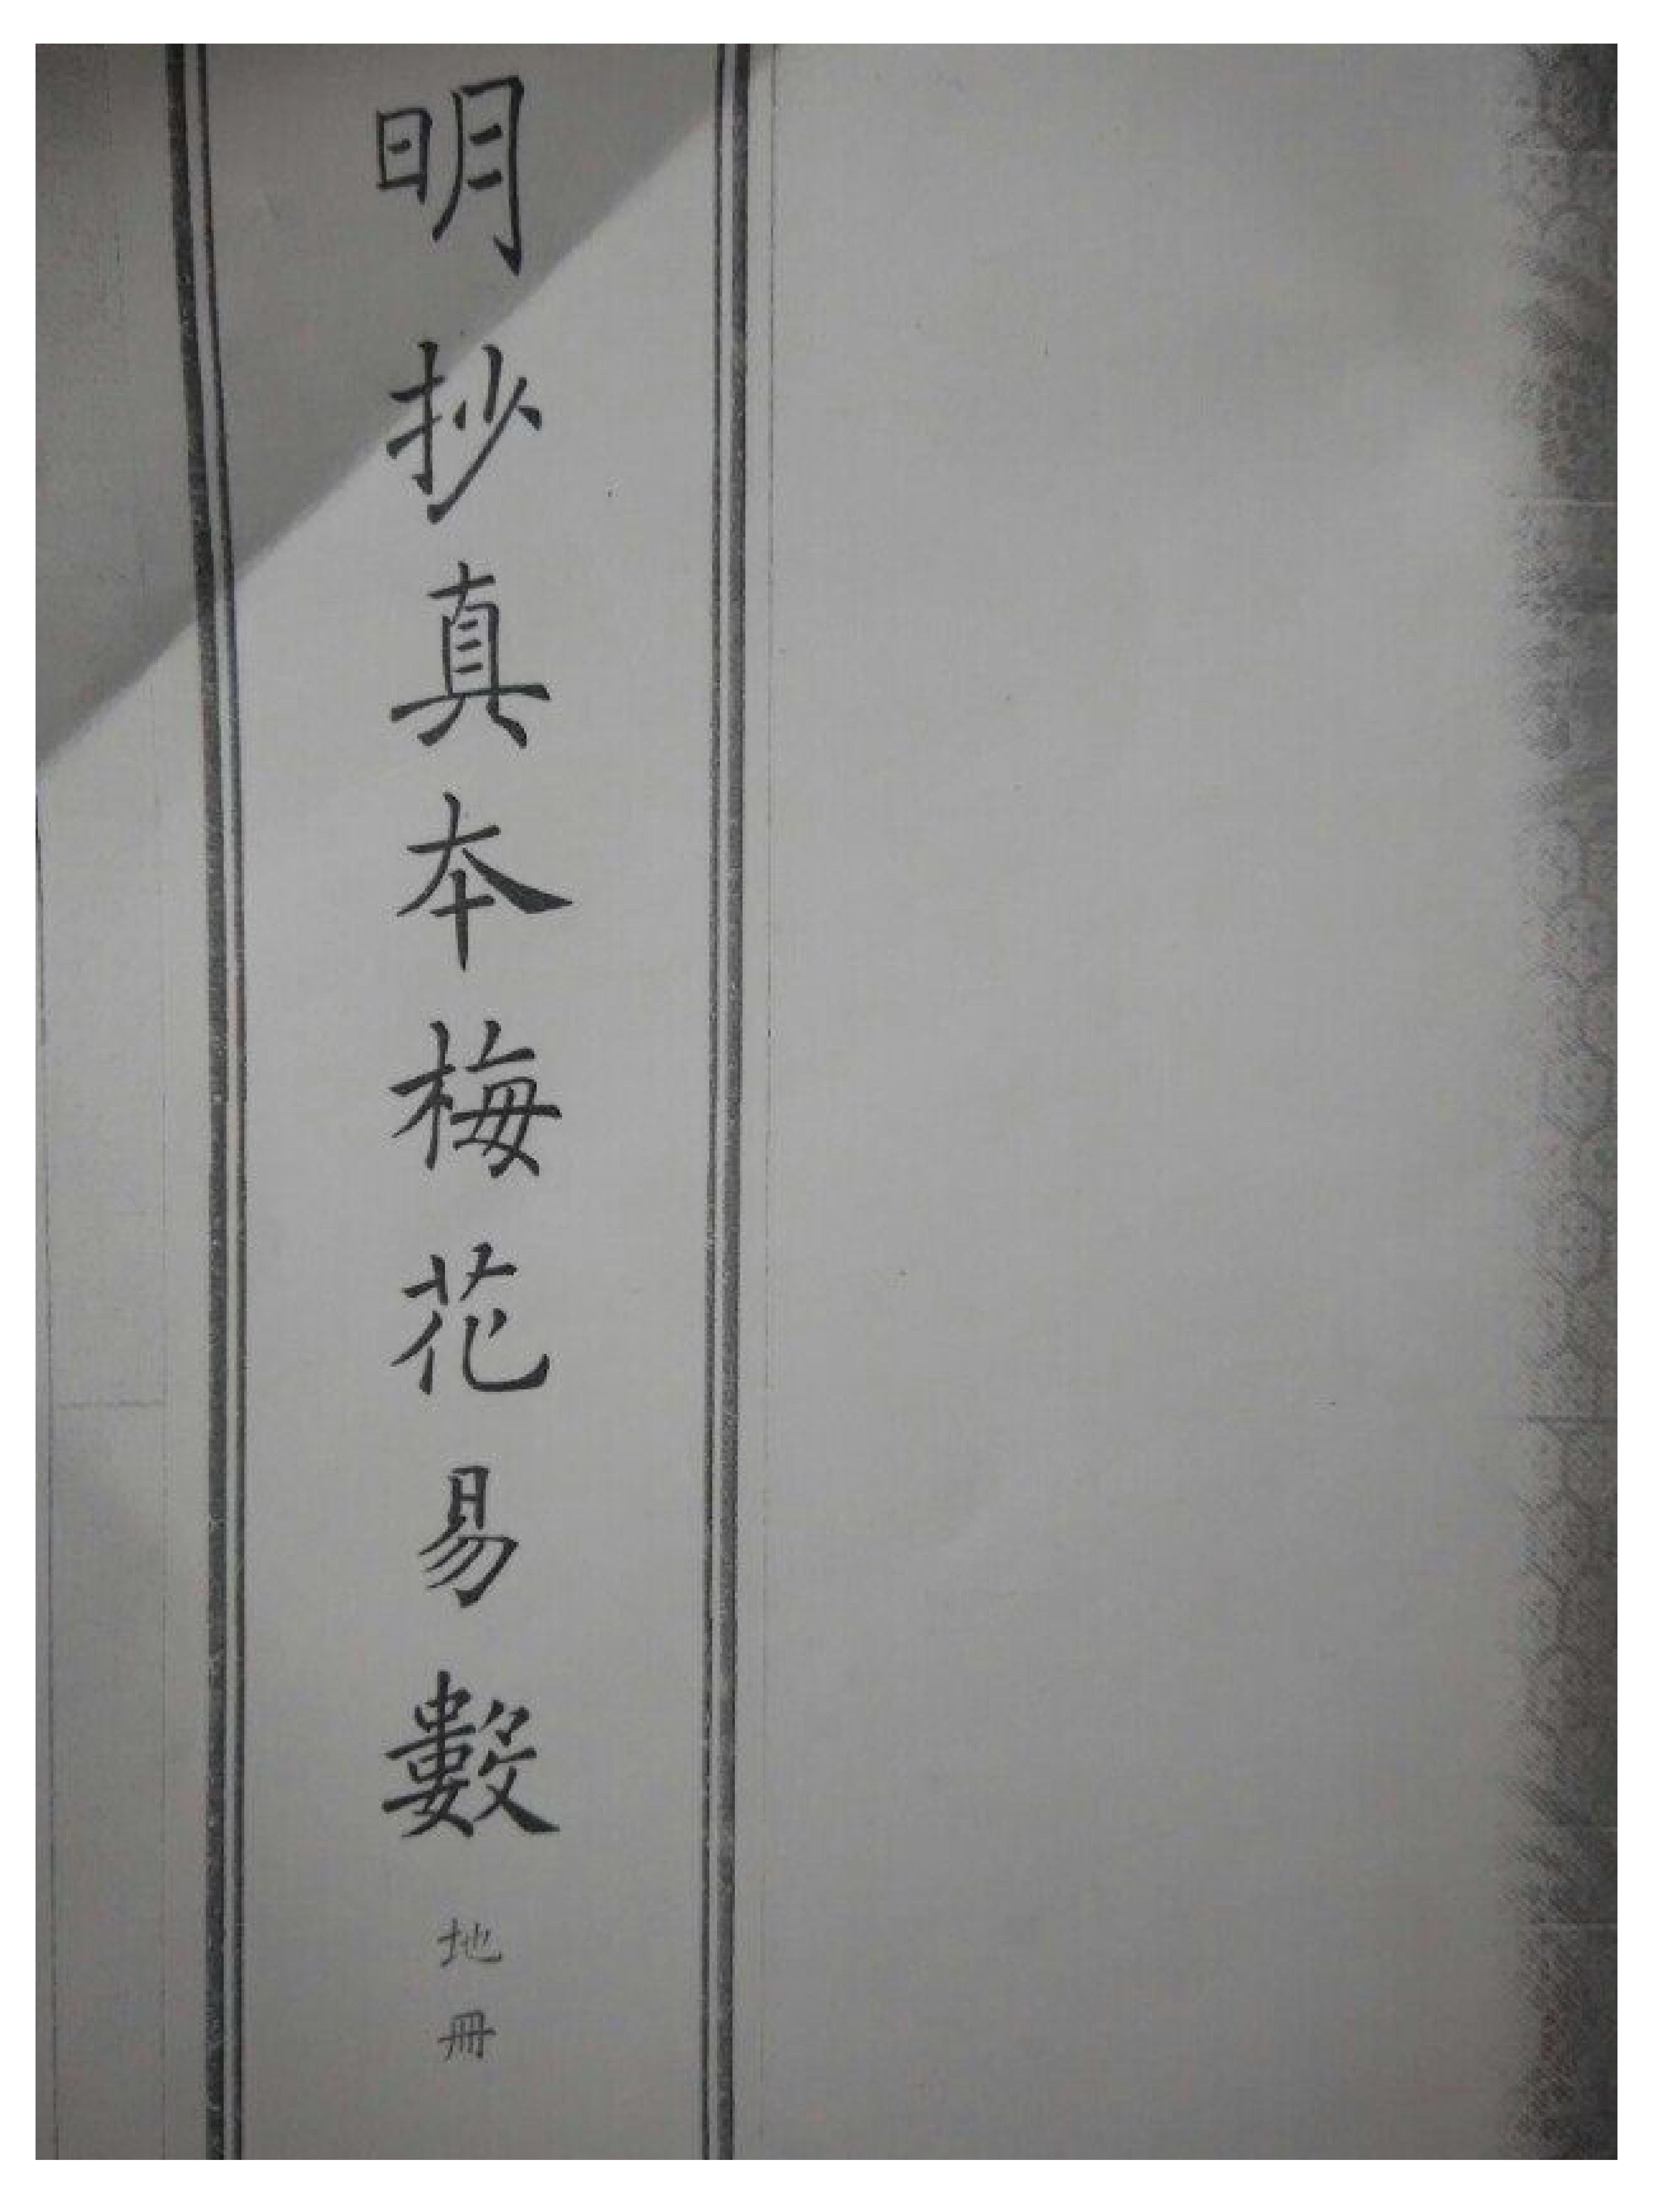 明抄真本梅花易數
地冊